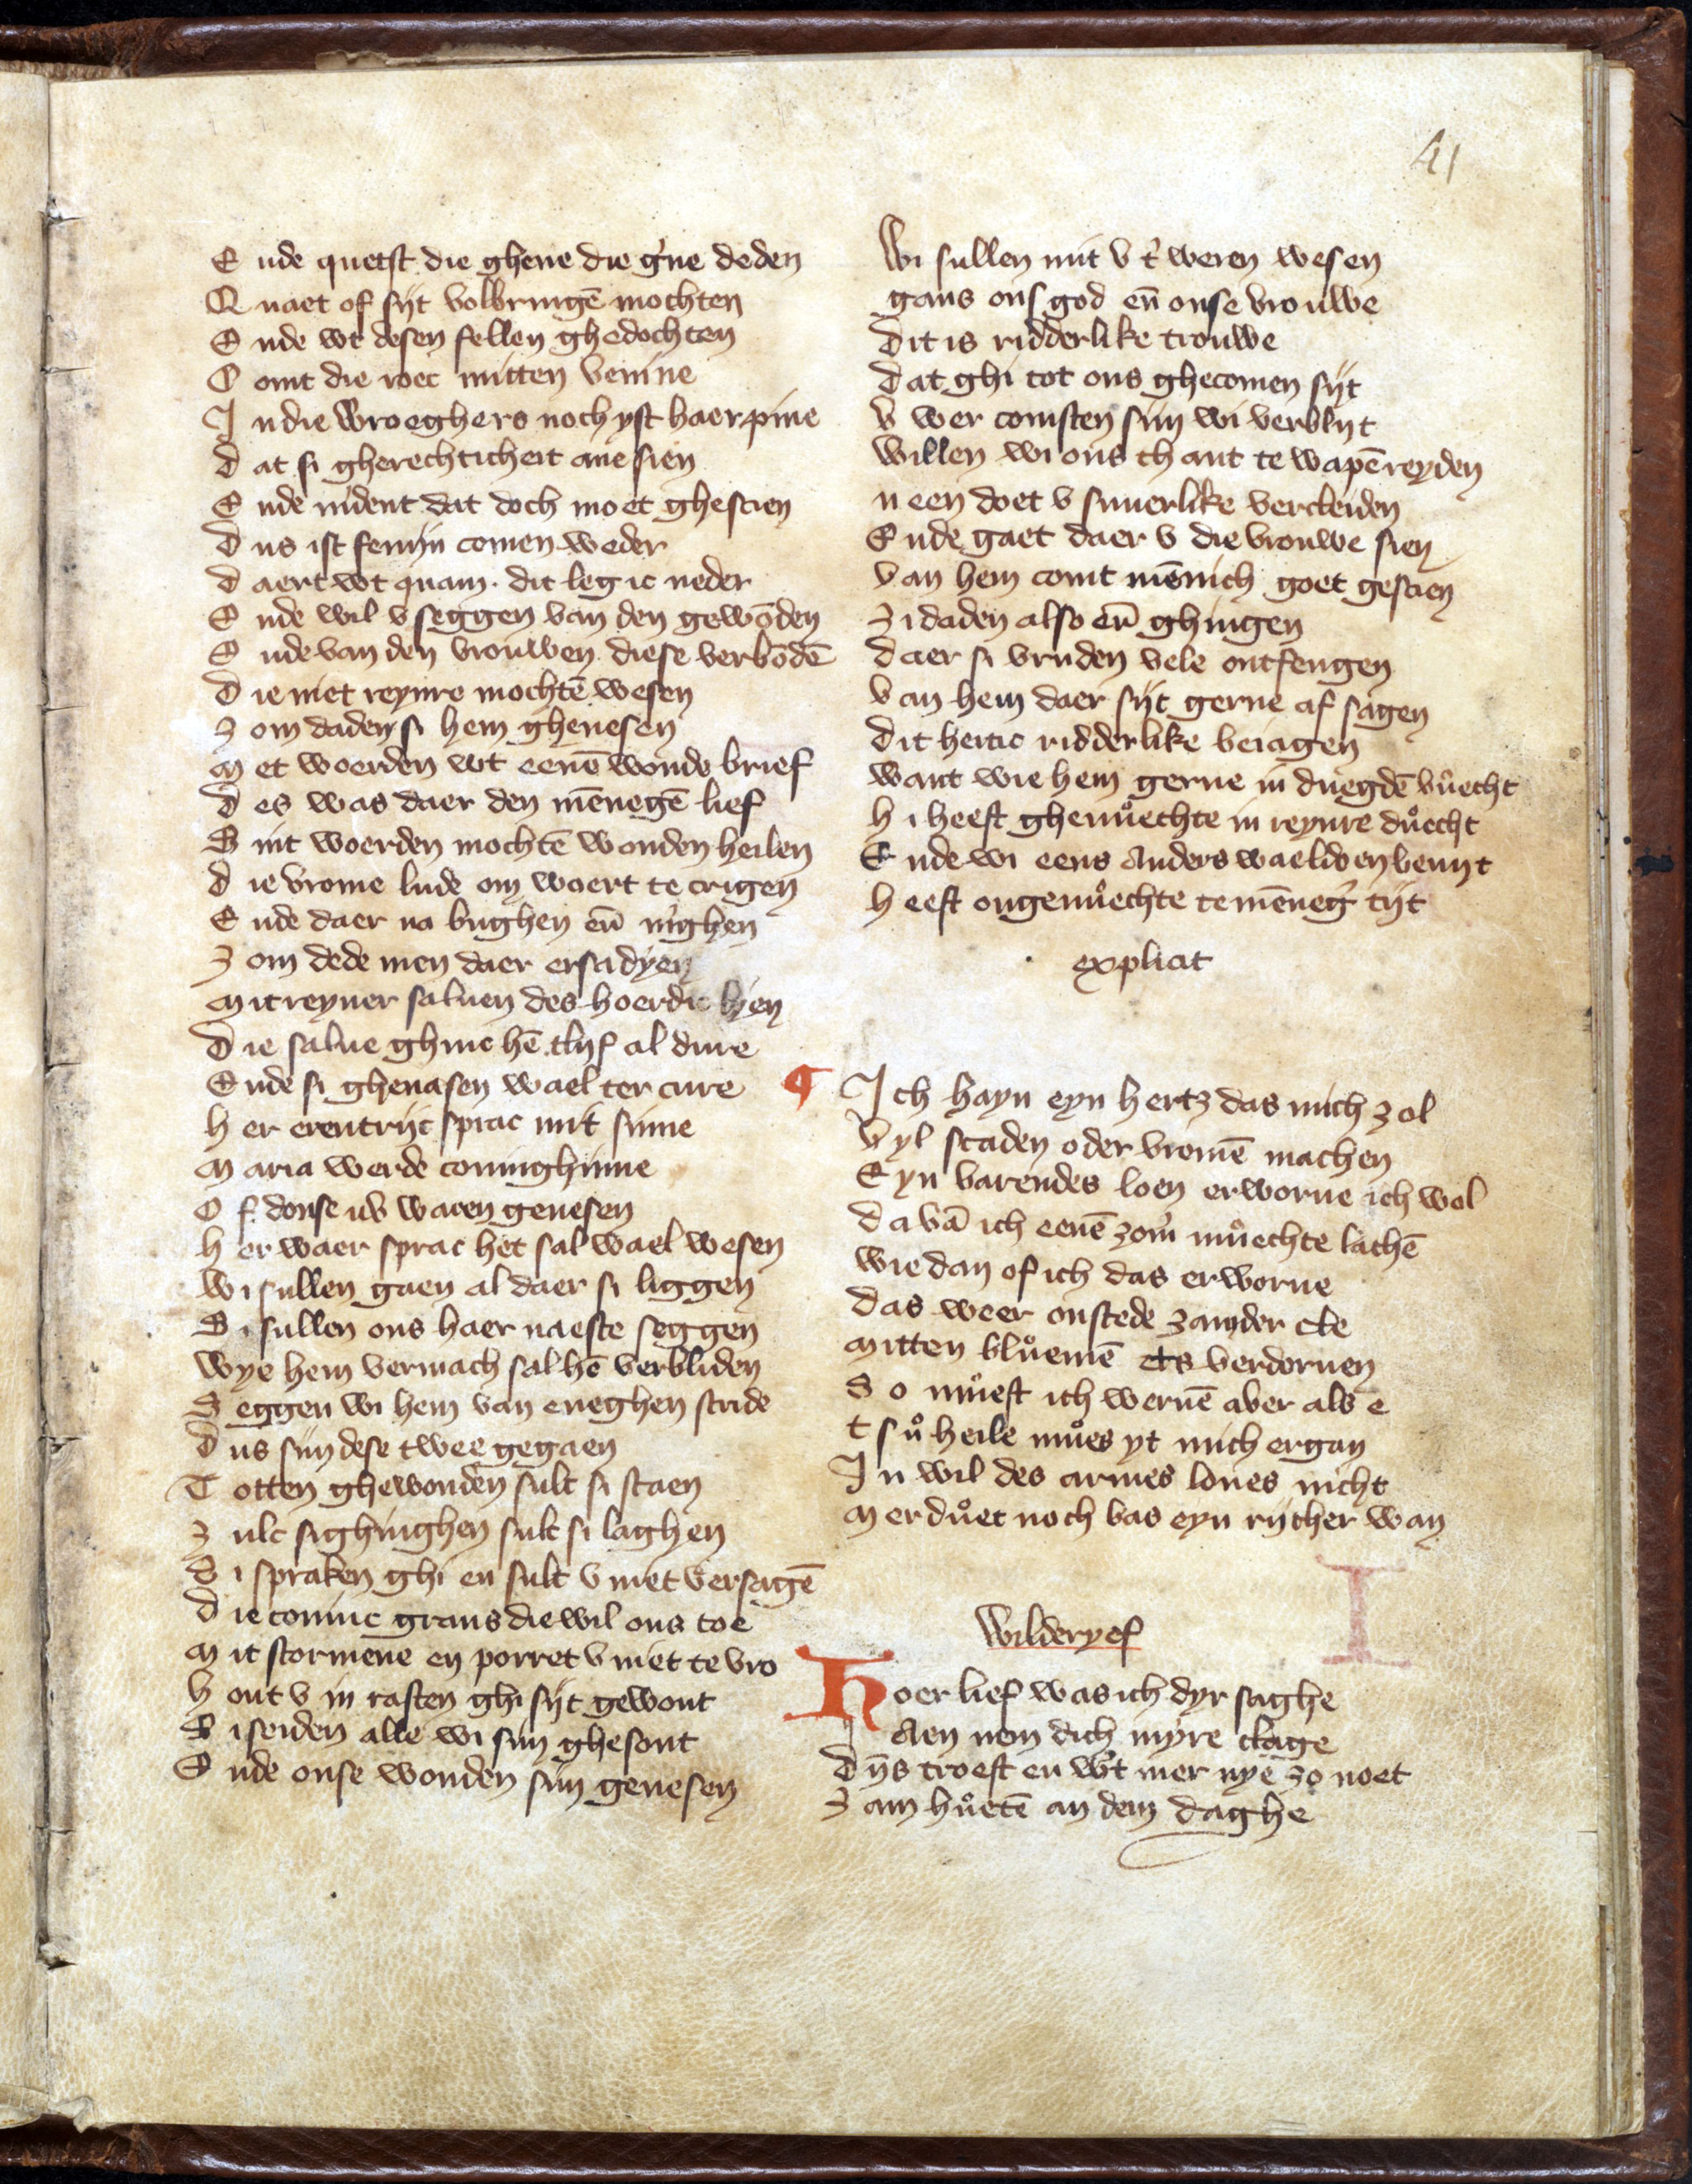 41
Ende quetst die ghene die g'ne deden
Quaet of sijt volbringē mochten
Ende wt desen fellen ghedochten
Comt die roec mitten venine
In die wroeghers noch yst haer pine
Dat si gherechticheit ane sien
Ende nident dat doch moet ghescien
Dus ist fenijn comen weder
Daert wt quam. dit leg ic neder
Ende wil v seggen van den gewōden
Ende van den vrouwen diese verbōdē
Die niet reynre mochtē wesen
Zom daden si hem ghenesen
Met woerden wt eenē wonde brief
Des was daer den mēnegē lief
Mit woerden mochtē wonden heilen
Die vrome lude om woert te crigen
Ende daer na bughen eñ nighen
Zom dede men daer ersadyen
Mit reyner saluen des hoerdic lyen
Die salue ghinc hē tlijf al dure
Ende si ghenasen wael ter cure
Her erentrijc sprac mit sinne
Maria werde coninghinne
Of donse nv waren genesen
Her waer sprac het sal wael wesen
Wi sullen gaen al daer si liggen
Si sullen ons haer naeste seggen
Wye hem vermach sal hē verbliden
Seggen wi hem van eneghen stride
Dus sijn dese twee gegaen
Totten ghewonden sulc si staen
Zulc si ghinghen sulc si laghen
Si spraken ghi en sult v niet versagē
Die coninc grans die wil ons toe
Mit stormene en porret v niet te vro
Hout v in rasten ghi sijt gewont
Si seiden alle wi sijn ghesont
Ende onse wonden sijn genesen
Wi sullen mit v t' weren wesen
gans ons god eñ onse vrouwe
Dit is ridderlike trouwe
Dat ghi tot ons ghecomen sijt
Vwer comsten sijn wi verblijt
Willen wi ons thant te wapē reyden
Neen doet v suuerlike vercleiden
Ende gaet daer v die vrouwe sien
Van hem comt mēnich goet gescien
Zi daden also eñ ghingen
Daer si vruden vele ontfengen
Van hem daer sijt gerne af sagen
Dit heitic ridderlike beiagen
Want wie hem gerne in duegdē vůecht
Hi heeft ghenůechte in reynre důecht
Ende wi eens anders waeldoen benijt
Heeft ongenůechte te mēneg' tijt
explicit
¶ Ich hayn eyn hertz das mich zol
Vyl scaden oder vromē machen
Eyn varendes loen erworne ich wol
Da vā ich eenē zom' můechte lachē
Wie dan of ich das erworne
Das weer onstede zander cle
Mitten blůemē ets verdoruen
So můest ich wernē aber als e
Tsů heile můes yt mich ergan
In wil des armes lones nicht
Mer důet noch bas eyn rijcher wan
I
Wilderyef
Hoer lief was ich dyr saghe
Aen nen dich mijre clage
Dijs troest en w't mer nye zo noet
Zam hůetē an dem daghe